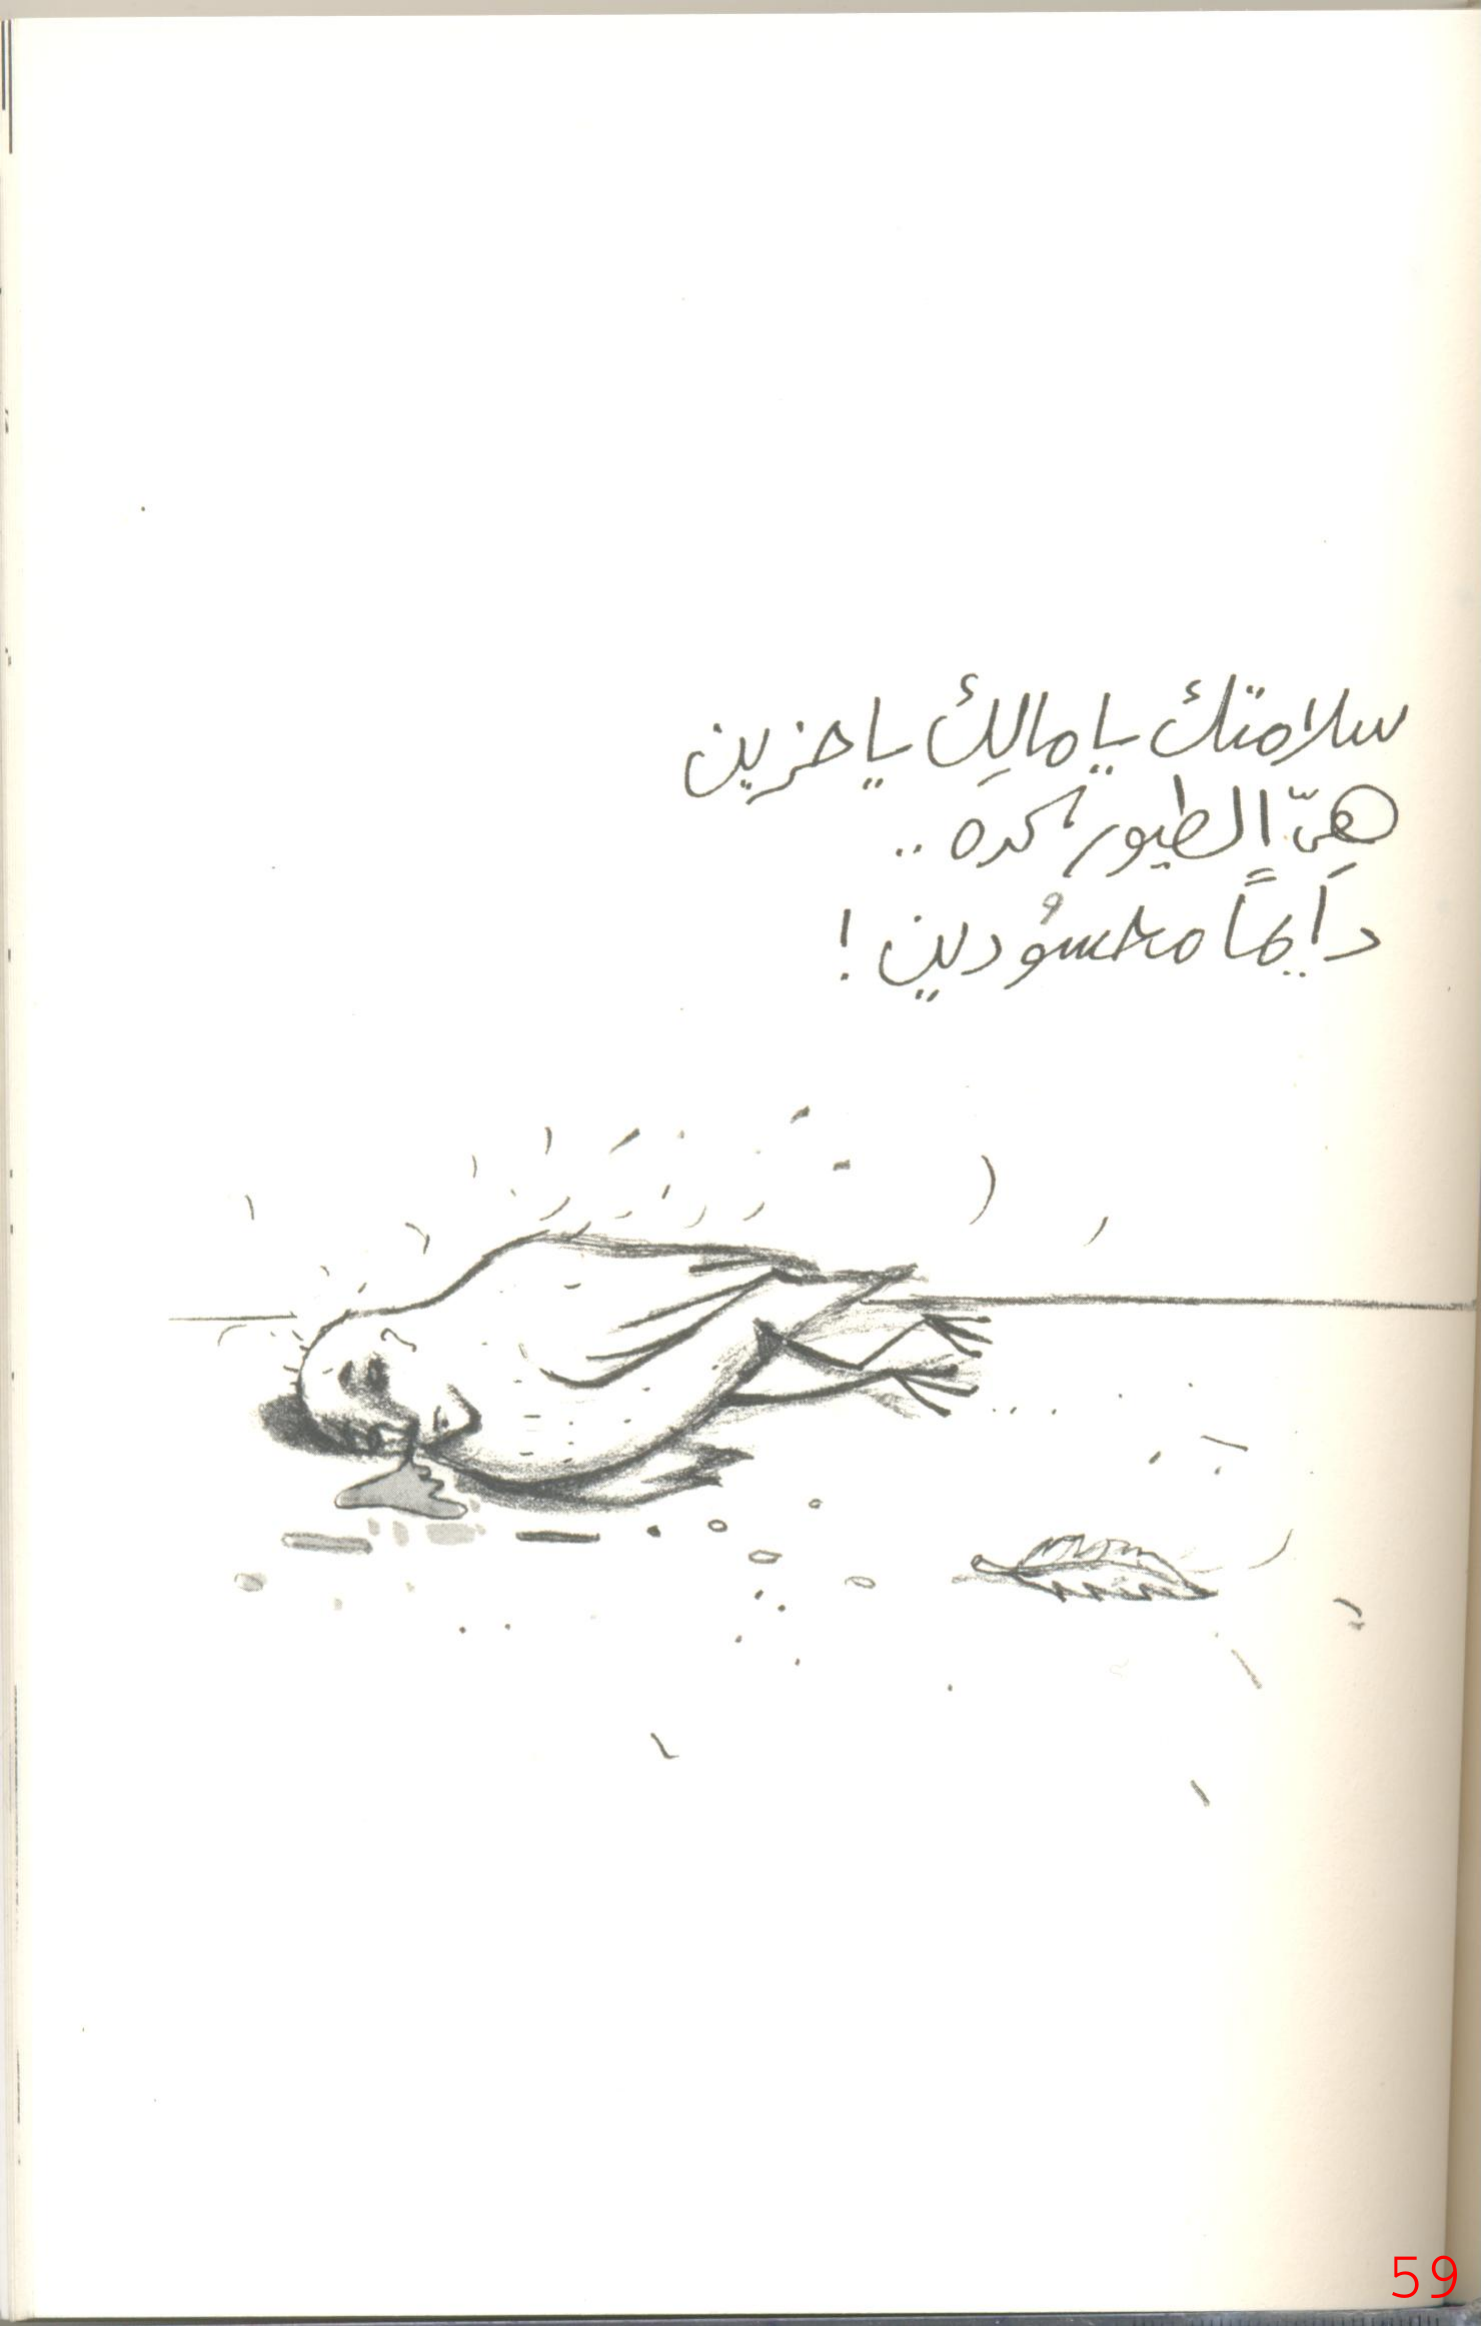 سلامتك يا مالِك يا حزين
هىّ الطيور كده ..
دَايماً محسُودين !
59